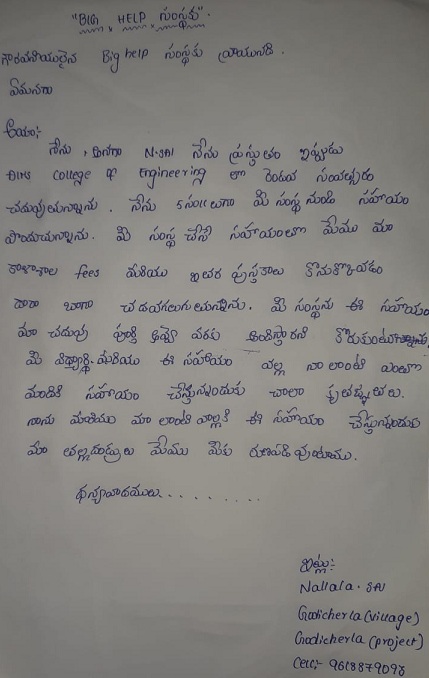 "BIG HELP సంస్థకు"
గౌరవనీయులైన Big help సంస్థకు వ్రాయునది.
ఏమనగా
అయ్యా:-
నేను, అనగా N. SAI నేను ప్రస్తుతం ఇప్పుడు
College of Engineering లో రెండవ సంవత్సరం
చదువుతున్నాను. నేను 5 సం॥లుగా మీ సంస్థ నుండి సహాయం
పొందుచున్నాను. మీ సంస్థ చేసే సహాయంతో మేము మా
కళాశాల fees మరియు ఇతర పుస్తకాలు కొనుక్కోవడం
ద్వారా బాగా చదవగలుగుతున్నాను. మీ సంస్థను ఈ సహాయం
మా చదువు పూర్తి అయ్యే వరకు అందిస్తారని కోరుకుంటున్నాను
మీ విద్యార్థి. మరియు ఈ సహాయం వల్ల నా లాంటి ఎంతో
మందికి సహాయం చేస్తున్నందుకు చాలా కృతజ్ఞతలు.
నాకు మరియు మా లాంటి వాళ్లకి ఈ సహాయం చేస్తున్నందుకు
మా తల్లదండ్రులు మేము మీకు రుణపడి వుంటాము.
ధన్యవాదములు..........
ఇట్లు:-
Nallala. SAI
Godicherla (village)
Godicherla (project)
Cell:- 9618879098